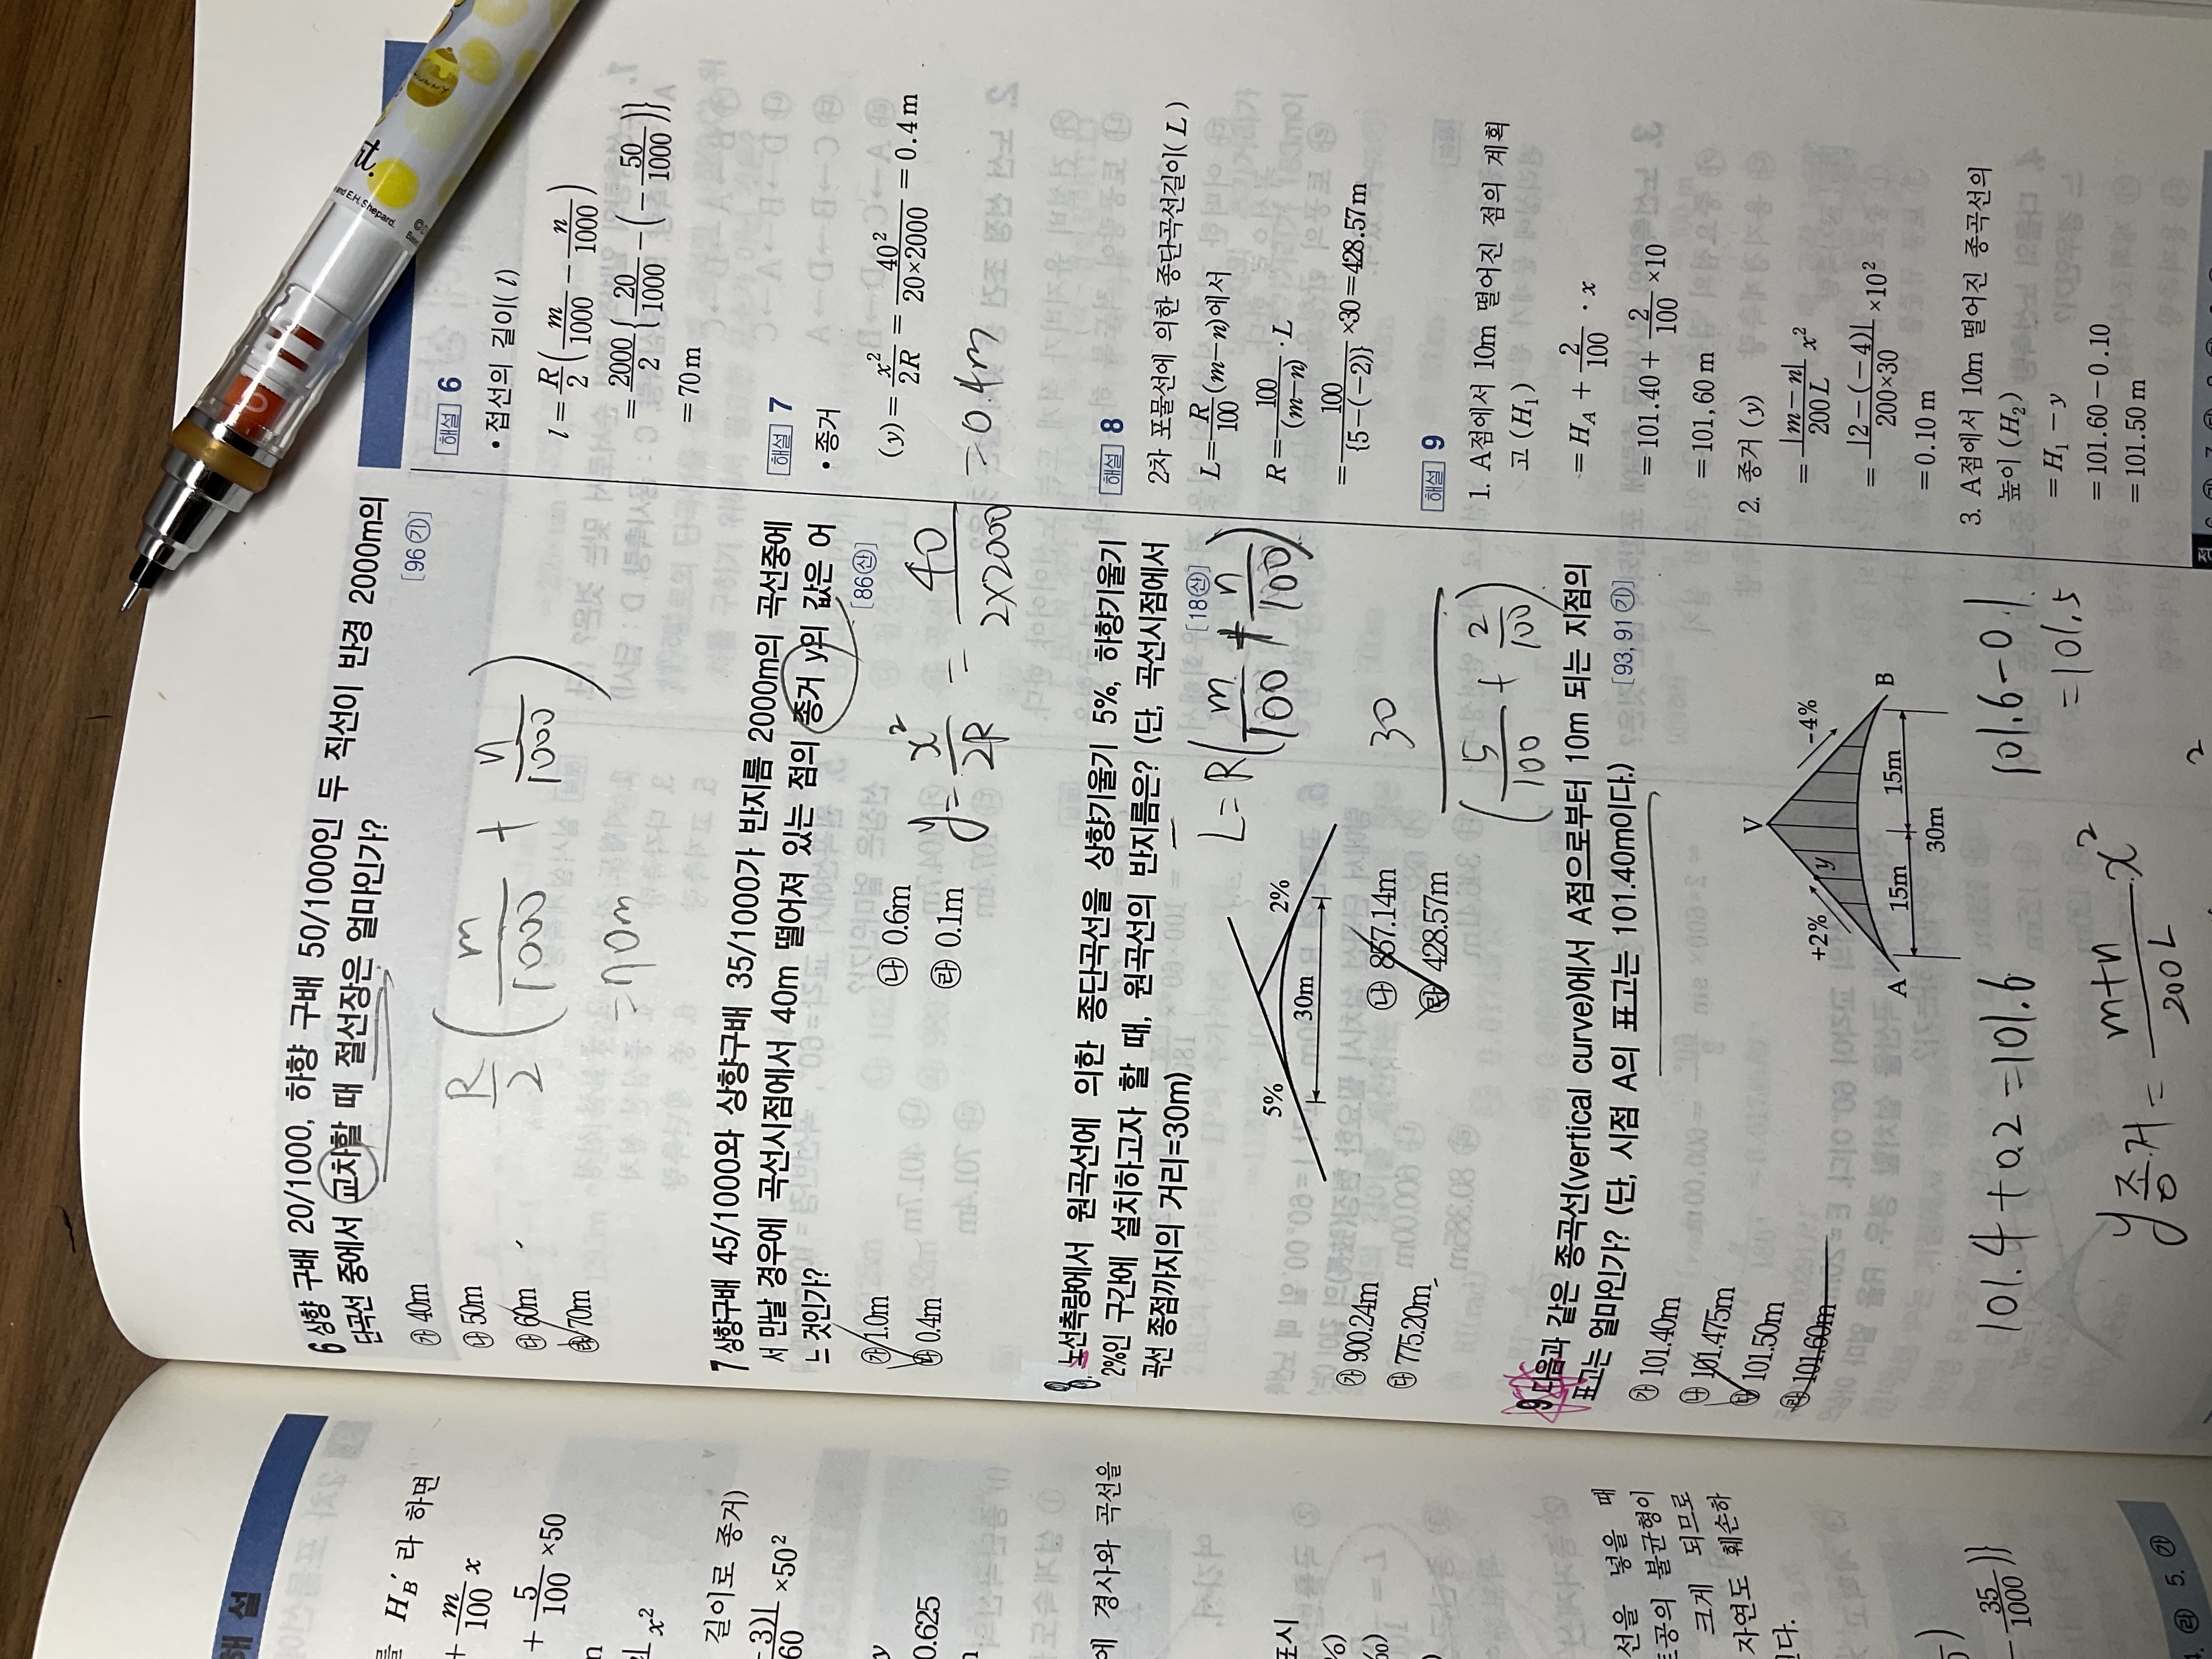 6 상향 구배 20/1000, 하향 구배 50/1000인 두 직선이 반경 2000m의
단곡선 중에서 교차할 때 절선장은 얼마인가?
[96 ㉮]
㉮ 40m
㉯ 50m
㉰ 60m
㉱ 70m
R/2 ( m/1000 + n/1000 )
= 70m
7 상향구배 45/1000와 상향구배 35/1000가 반지름 2000m의 곡선중에
서 만날 경우에 곡선시점에서 40m 떨어져 있는 점의 종거 y의 값은 어
느 것인가?
[86 ㉯]
㉮ 1.0m
㉯ 0.6m
㉰ 0.4m
㉱ 0.1m
y = x²/2R = 40/2×2000 = 0.4m
8. 노선측량에서 원곡선에 의한 종단곡선을 상향기울기 5%, 하향기울기
2%인 구간에 설치하고자 할 때, 원곡선의 반지름은? (단, 곡선시점에서
곡선 종점까지의 거리=30m)
[18]
5%
2%
30m
㉮ 900.24m
㉯ 857.14m
㉰ 775.20m
㉱ 428.57m
L = R( m/100 + n/100 )
30
( 5/100 + 2/100 )
9. 다음과 같은 종곡선(vertical curve)에서 A점으로부터 10m 되는 지점의
표고는 얼마인가? (단, 시점 A의 표고는 101.40m이다.)
[93, 91]
㉮ 101.40m
㉯ 101.475m
㉰ 101.50m
㉱ 101.60m
V
+2%
-4%
y
A
B
15m
15m
30m
101.4 + 0.2 = 101.6
101.6 - 0.1
= 101.5
y종거 = m+n/200L x²
해설 6
• 접선의 길이(l)
l = R/2 ( m/1000 - n/1000 )
= 2000/2 { 20/1000 - ( - 50/1000 )}
= 70 m
해설 7
• 종거
(y) = x²/2R = 40²/20×2000 = 0.4 m
해설 8
2차 포물선에 의한 종단곡선길이(L)
L = R/100 (m-n)에서
R = 100/(m-n) · L
= 100/{5-(-2)} ×30 = 428.57m
해설 9
1. A점에서 10m 떨어진 점의 계획
고 (H₁)
= H_A + 2/100 · x
= 101.40 + 2/100 ×10
= 101,60 m
2. 종거 (y)
= |m-n|/200L x²
= |2-(-4)|/200×30 ×10²
= 0.10 m
3. A점에서 10m 떨어진 종곡선의
높이 (H₂)
= H₁ - y
= 101.60 - 0.10
= 101.50 m
해 설
를 H_B′라 하면
+ m/100 x
+ 5/100 ×50
길이로 종거)
×50²
0.625
에 경사와 곡선을
표시
선을 넣을 때
토공의 불균형이
크게 되므로
자연도 훼손하
된다.
35/1000 )}
5. ㉮